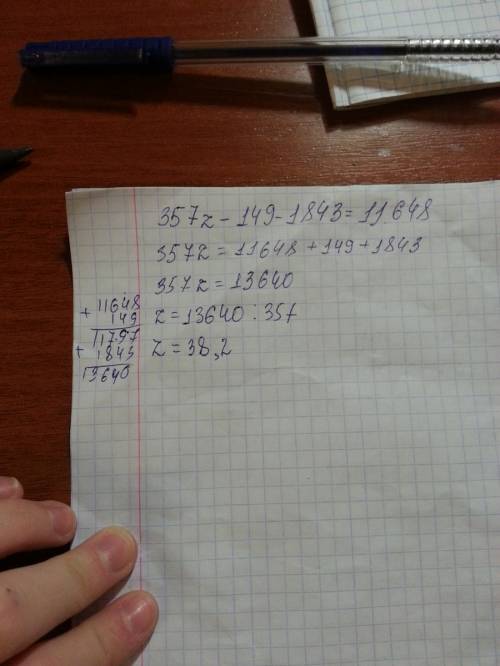 357z - 149 - 1843 = 11648
357z = 11648 + 149 + 1843
357z = 13640
z = 13640 : 357
z = 38,2
+ 11648
149
11797
+ 1843
13640